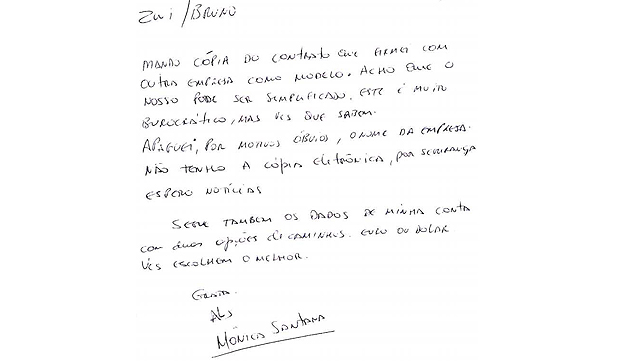 Zwi / BRUNO
MANDO CÓPIA DO CONTRATO QUE FIRMEI COM
OUTRA EMPRESA COMO MODELO. ACHO QUE O
NOSSO PODE SER SIMPLIFICADO. ESTE É MUITO
BUROCRÁTICO, MAS VCS QUE SABEM.
APAGUEI, POR MOTIVOS ÓBVIOS, O NOME DA EMPRESA.
NÃO TENHO A CÓPIA ELETRÔNICA, POR SEGURANÇA
ESPERO NOTÍCIAS
SEGUE TAMBÉM OS DADOS DE MINHA CONTA
COM duas opções de CAMINHOS. EURO OU DOLAR
VCS ESCOLHEM O MELHOR.
GRATA.
ABS
MÔNICA SANTANA